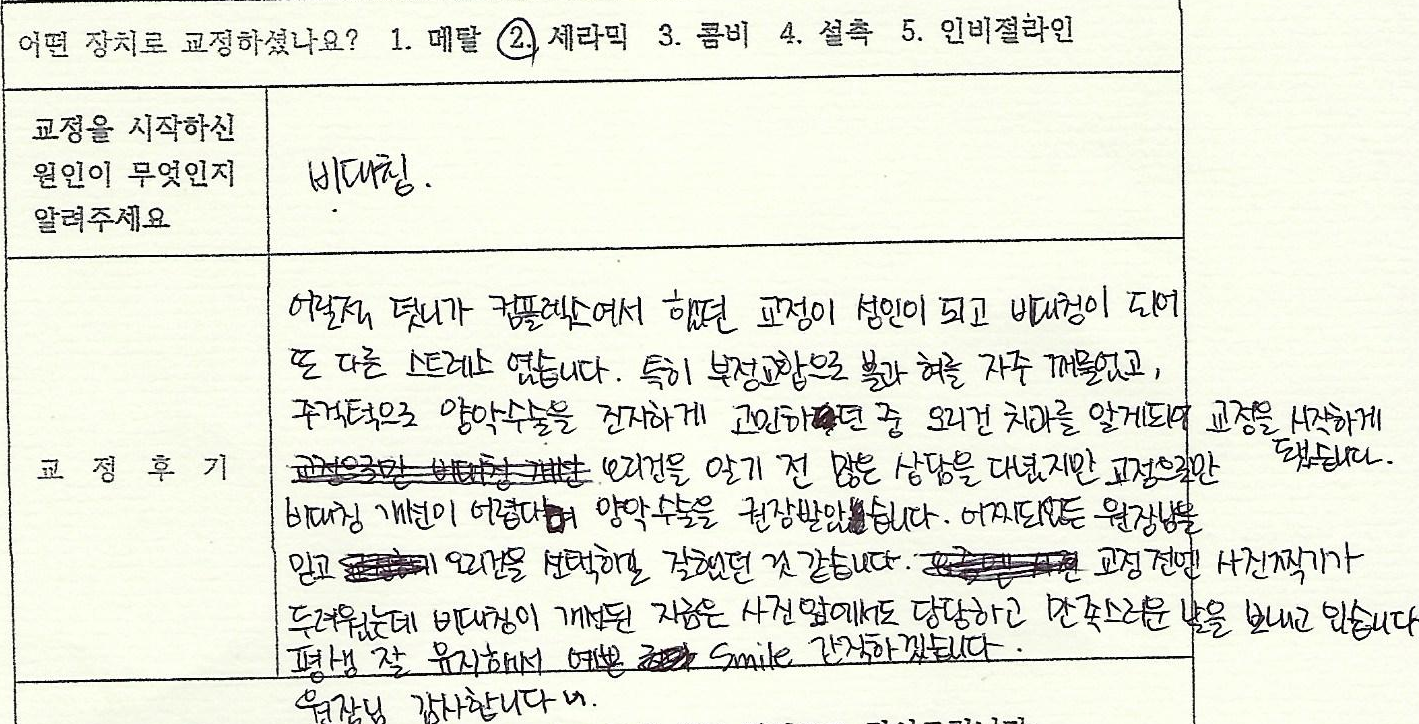 어떤 장치로 교정하셨나요? 1. 메탈 2. 세라믹 3. 콤비 4. 설측 5. 인비절라인
교정을 시작하신
원인이 무엇인지
알려주세요
비대칭.
교 정 후 기
어릴적, 덧니가 컴플렉스여서 했던 교정이 성인이 되고 비대칭이 되어
또 다른 스트레스 였습니다. 특히 부정교합으로 볼과 혀를 자주 깨물었고,
주걱턱으로 양악수술을 진지하게 고민하던 중 오리건 치과를 알게되어 교정을 시작하게
됐습니다.
오리건을 알기 전 많은 상담을 다녔지만 교정으로만
비대칭 개선이 어렵다며 양악수술을 권장받았습니다. 어찌되었든 원장님을
믿고 오리건을 선택하길 잘했던 것 같습니다. 교정전엔 사진찍기가
두려웠는데 비대칭이 개선된 지금은 사진앞에서도 당당하고 만족스러운 날을 보내고 있습니다
평생 잘 유지해서 예쁜 Smile 간직하겠습니다.
원장님 감사합니다